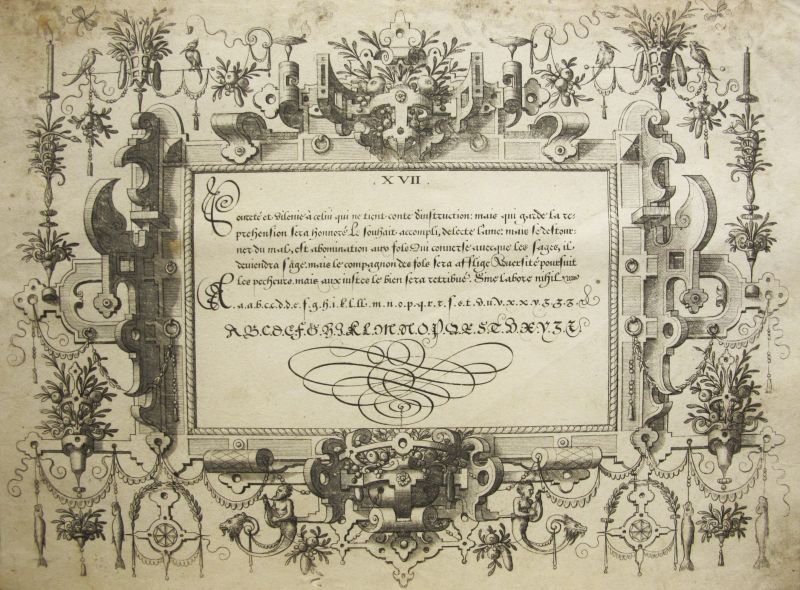 XVII.
Povreté et vilenie à celui qui ne tient conte d'instruction: mais qui garde la re-
prehension sera honnoré. Le souhait accompli, delecte l'ame: mais se destour-
ner du mal, est abomination aux fols. Qui converse avecque les sages, il
deviendra sage, mais le compagnon des fols sera affligé. Adversité poursuit
les pecheurs, mais aux iustes le bien sera retribué. Sine labore nihil.
A. a. a. b. c. c. d. d. e. f. g. h. i. k. l. ll. m. n. o. p. q. r. r. s. s. t. d. u. v. x. x. y. z. z. z. &
A B C D E F G H I K L M N O P Q R S T V X Y Z Z